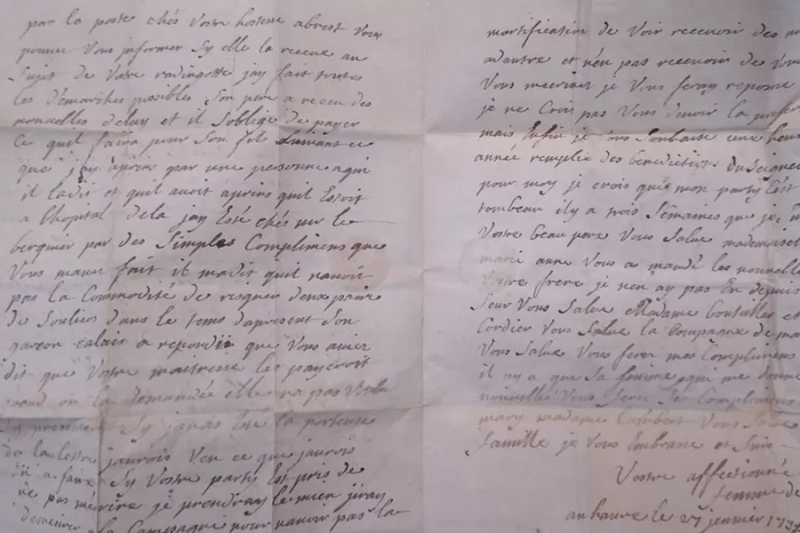 par la poste chés Vostre hostesse abrest Vous
pouver Vous informer Sy elle la receue au
Sujet de Votre radingotte jay fait toutes
les démarches possibles Son pere a receu des
nouvelles deluy et il Soblege de payer
Ce quil faira pour Son fil Suivant ce
que jay apris par une personne aqui
il ladit et quil avoit aprins quil Estoit
a lhopital dela jay Esté chés mr le
berquier par des Simples Complimens que
Vous maver fait il madit quil navoit
pas la Commodité de risquer deux paire
de Souliers dans le tems dapresent Son
garcon calais a repondu que Vous aviez
dit que Votre maitresse les payeroit
quand on la demandée elle na pas Voulu
Sy jamais Esté la porteuse
de la lettre jaurois Veu ce que jaurois
Sy Vostre party Est pris de
ne pas mécrire je prendray le mien jiray
demeurer a la Campagne pour navoir pas la
mortification de Voir recevoir des
adautre et nen pas recevoir de
Vous mecriver je Vous feray reponse
je ne Crois pas Vous devoir la
mais Enfin je Vous Souhaite une heureuse
année remplie des benedictions du Seigneur
pour moy je crois que mon party Est
tombeau il y a trois Semaines que je
Vostre beau pere Vous Salue mademoiselle
marie anne Vous a mandé les nouvelles
Votre frere je nen ay pas Eu depuis
Seur Vous Salue Madame
Cordier Vous Salue la Compagne de
Vous Salue Vous ferer mes Complimens
il ny a que Sa femme qui me donne
nouvelles Vous Ses Complimens
mary madame Lambert Vous Salue
famille je Vous Embrasse et Suis
Vostre affectionné
femme de
au havre le 27 jenvier